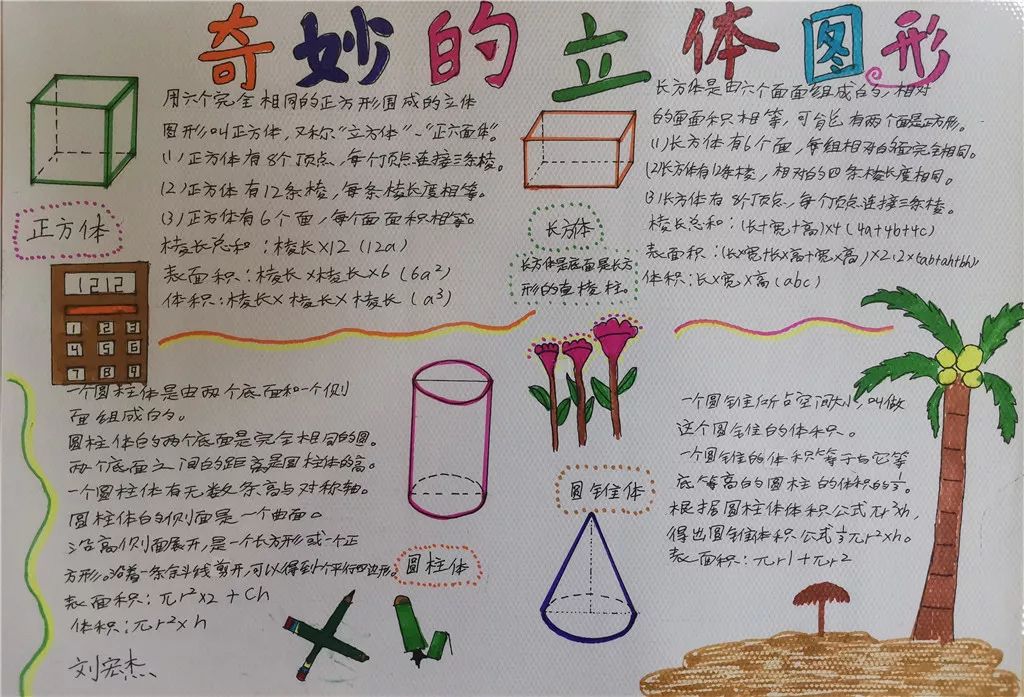 奇妙的立体图形
用六个完全相同的正方形围成的立体
图形叫正方体，又称“立方体”、“正六面体”。
(1)正方体有8个顶点，每个顶点连接三条棱。
(2)正方体有12条棱，每条棱长度相等。
(3)正方体有6个面，每个面面积相等。
棱长总和：棱长×12(12a)
表面积：棱长×棱长×6(6a²)
体积：棱长×棱长×棱长(a³)
正方体
1212
1 2 3
4 5 6
7 8 9
长方体是由六个面面组成的，相对
的面面积相等，可能有两个面是正方形。
(1)长方体有6个面，每组相对的面完全相同。
(2)长方体有12条棱，相对的四条棱长度相同。
(3)长方体有8个顶点，每个顶点连接三条棱。
棱长总和：(长+宽+高)×4(4a+4b+4c)
表面积：(长×宽+长×高+宽×高)×2,2×(ab+ah+bh)
体积：长×宽×高(abc)
长方体
长方体是底面是长方
形的直棱柱。
一个圆柱体是由两个底面和一个侧
面组成的。
圆柱体的两个底面是完全相同的圆。
两个底面之间的距离是圆柱体的高。
一个圆柱体有无数条高与对称轴。
圆柱体的侧面是一个曲面。
沿高侧面展开，是一个长方形或一个正
方形。沿着一条斜线剪开，可以得到个平行四边形。
表面积：πr²×2+Ch
体积：πr²×h
圆柱体
刘宏杰
圆锥体
一个圆锥所占空间大小，叫做
这个圆锥的体积。
一个圆锥的体积等于与它等
底等高的圆柱的体积的⅓。
根据圆柱体体积公式πr²h，
得出圆锥体积公式⅓πr²×h。
表面积：πrl+πr²